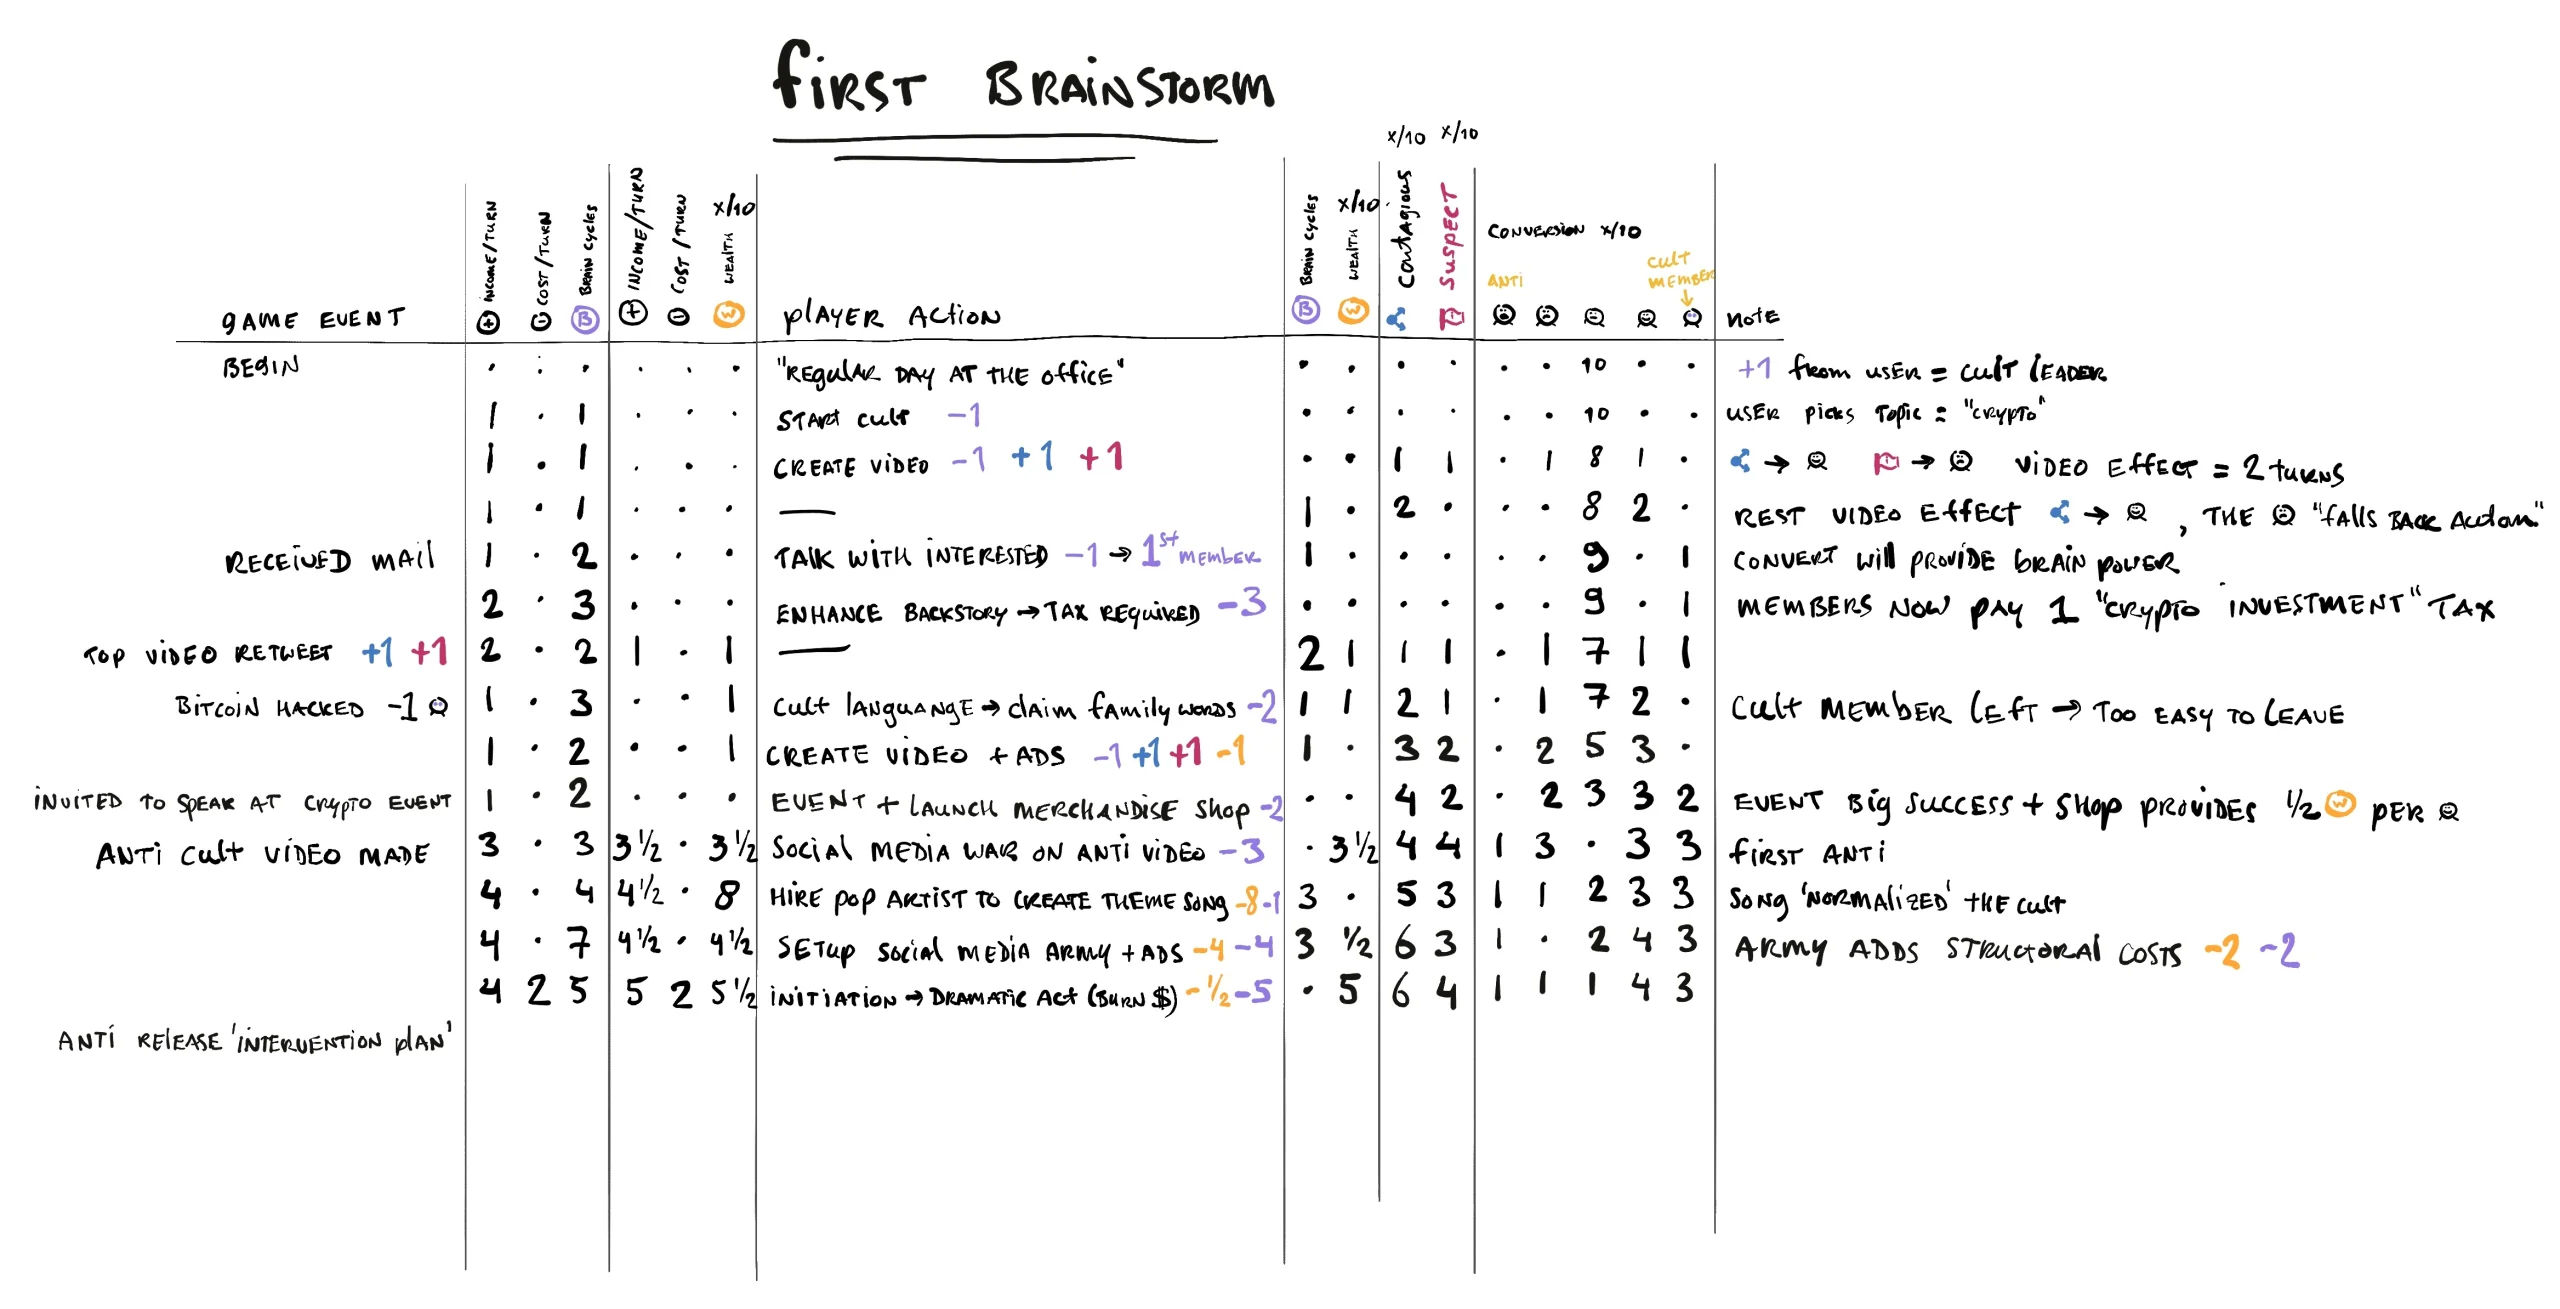 first BRAINSTORM
x/10 x/10
INCOME/TURN COST/TURN BRAIN cycles INCOME/TURN COST/TURN x/10 WEALTH BRAIN cycles x/10 WEALTH CONTAGIOUS SUSPECT CONVERSION x/10
ANTI CULT MEMBER
GAME EVENT + - B + - W PLAYER ACTION B W NOTE
BEGIN · · · · · · "REGULAR DAY AT THE OFFICE" · · · · · · 10 · · +1 from USER = CULT LEADER
1 · 1 · · · START CULT -1 · · · · · · 10 · · USER PICKS TOPIC = "CRYPTO"
1 · 1 · · · CREATE VIDEO -1 +1 +1 · · 1 1 · 1 8 1 · → → VIDEO EFFECT = 2 TURNS
1 · 1 · · · — 1 · 2 · · · 8 2 · REST VIDEO EFFECT → , THE "FALLS BACK
RECEIVED MAIL 1 · 2 · · · TALK WITH INTERESTED -1 → 1st MEMBER 1 · · · · · 9 · 1 CONVERT WILL PROVIDE BRAIN POWER
2 · 3 · · · ENHANCE BACKSTORY → TAX REQUIRED -3 · · · · · · 9 · 1 MEMBERS NOW PAY 1 "CRYPTO INVESTMENT" TAX
TOP VIDEO RETWEET +1 +1 2 · 2 1 · 1 — 2 1 1 1 · 1 7 1 1
BITCOIN HACKED -1 1 · 3 · · 1 CULT LANGUANGE → CLAIM FAMILY WORDS -2 1 1 2 1 · 1 7 2 · CULT MEMBER LEFT → TOO EASY TO LEAVE
1 · 2 · · 1 CREATE VIDEO + ADS -1 +1 +1 -1 1 · 3 2 · 2 5 3 ·
INVITED TO SPEAK AT CRYPTO EVENT 1 · 2 · · · EVENT + LAUNCH MERCHANDISE SHOP -2 · · 4 2 · 2 3 3 2 EVENT BIG SUCCESS + SHOP PROVIDES 1/2 W PER
ANTI CULT VIDEO MADE 3 · 3 3 1/2 · 3 1/2 SOCIAL MEDIA WAR ON ANTI VIDEO -3 · 3 1/2 4 4 1 3 · 3 3 FIRST ANTI
4 · 4 4 1/2 · 8 HIRE POP ARTIST TO CREATE THEME SONG -8 -1 3 · 5 3 1 1 2 3 3 SONG 'NORMALIZED' THE CULT
4 · 7 4 1/2 · 4 1/2 SETUP SOCIAL MEDIA ARMY + ADS -4 -4 3 1/2 6 3 1 · 2 4 3 ARMY ADDS STRUCTORAL COSTS -2 -2
4 2 5 5 2 5 1/2 INITIATION → DRAMATIC ACT (BURN $) -1/2 -5 · 5 6 4 1 1 1 4 3
ANTI RELEASE 'INTERVENTION PLAN'